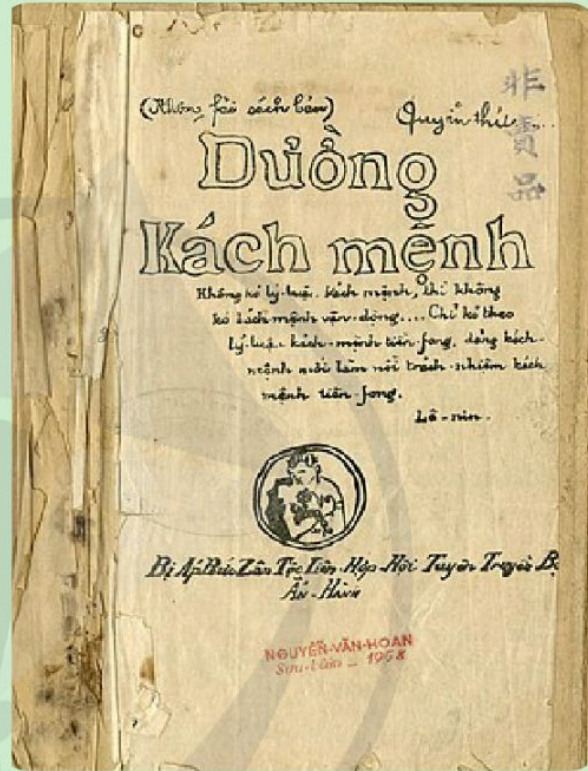 (Không fải sách bán)
Quyển thứ...
非
賣
品
Đường
Kách mệnh
Không kó lý-luận kách mệnh, thì không
kó kách mệnh vận-động.... Chỉ kó theo
lý-luận kách-mệnh tiền-fong, đảng kách-
mệnh mới làm nổi trách-nhiệm kách
mệnh tiền-fong.
Lê-nin.
Bị Áp Bức Zân Tộc Liên-Hiệp-Hội Tuyên Truyền Bộ
Ấn-Hành
NGUYỄN-VĂN-HOAN
Sưu-tầm _ 1958